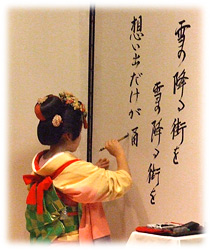 雪の降る街を
雪の降る街を
想い出だけが